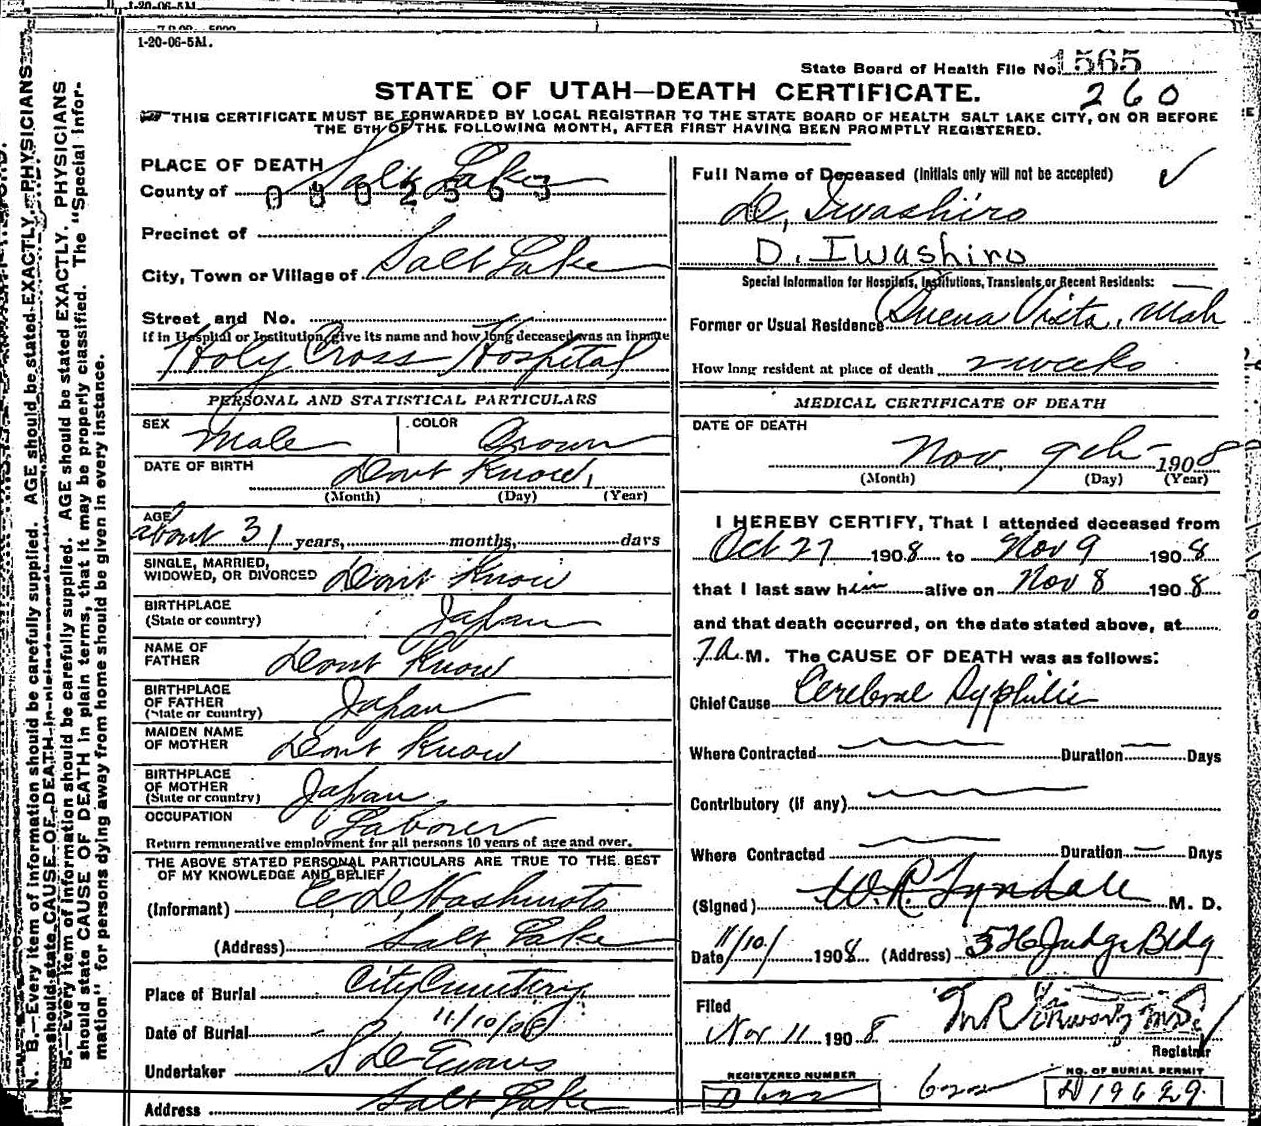 1-20-06-5M.
1-20-06-5M.
State Board of Health File No. 1565
STATE OF UTAH—DEATH CERTIFICATE.
260
THIS CERTIFICATE MUST BE FORWARDED BY LOCAL REGISTRAR TO THE STATE BOARD OF HEALTH SALT LAKE CITY, ON OR BEFORE
THE 5TH OF THE FOLLOWING MONTH, AFTER FIRST HAVING BEEN PROMPTLY REGISTERED.
N. B.—Every item of information should be carefully supplied. AGE should be stated EXACTLY. PHYSICIANS
should state CAUSE OF DEATH in plain terms
B.—Every item of information should be carefully supplied. AGE should be stated EXACTLY. PHYSICIANS
should state CAUSE OF DEATH in plain terms, that it may be properly classified. The "Special Infor-
mation" for persons dying away from home should be given in every instance.
PLACE OF DEATH
County of Salt Lake
Precinct of
City, Town or Village of Salt Lake
Street and No.
If in Hospital or Institution, give its name and how long deceased was an inmate
Holy Cross Hospital
PERSONAL AND STATISTICAL PARTICULARS
SEX Male COLOR Brown
DATE OF BIRTH Dont Know,
(Month) (Day) (Year)
AGE about 31 years, months, days
SINGLE, MARRIED,
WIDOWED, OR DIVORCED Dont Know
BIRTHPLACE
(State or country) Japan
NAME OF
FATHER Dont Know
BIRTHPLACE
OF FATHER
(State or country) Japan
MAIDEN NAME
OF MOTHER Dont Know
BIRTHPLACE
OF MOTHER
(State or country) Japan
OCCUPATION Laborer
Return remunerative employment for all persons 10 years of age and over.
THE ABOVE STATED PERSONAL PARTICULARS ARE TRUE TO THE BEST
OF MY KNOWLEDGE AND BELIEF
(Informant) E. D. Hashimoto
(Address) Salt Lake
Place of Burial City Cemetery
Date of Burial 11/10/08
Undertaker S D Evans
Address Salt Lake
Full Name of Deceased (Initials only will not be accepted)
D. Iwashiro
D. Iwashiro
Special Information for Hospitals, Institutions, Transients, or Recent Residents:
Former or Usual Residence Buena Vista, Utah
How long resident at place of death 2 weeks
MEDICAL CERTIFICATE OF DEATH
DATE OF DEATH
Nov. 9th 1908
(Month) (Day) (Year)
I HEREBY CERTIFY, That I attended deceased from
Oct 27 1908 to Nov 9 1908
that I last saw him alive on Nov 8 1908
and that death occurred, on the date stated above, at
7 A. M. The CAUSE OF DEATH was as follows:
Chief Cause Cerebral Syphilis
Where Contracted Duration Days
Contributory (if any)
Where Contracted Duration Days
(Signed) W. R. Tyndale M. D.
Date 11/10/ 1908 (Address) Judge Bldg
Filed
Nov 11 1908
Registrar
REGISTERED NUMBER
D 622
622
NO. OF BURIAL PERMIT
D 19629